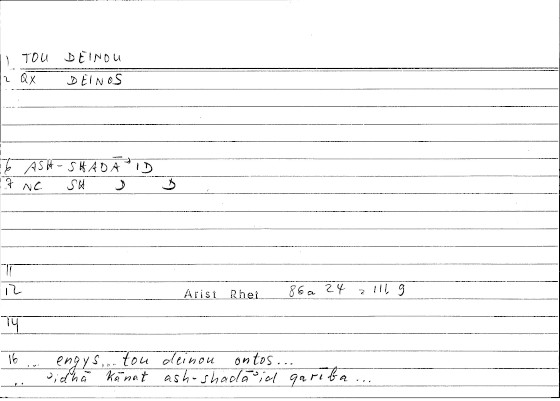 1 TOU DEINOU
2 QX DEINOS
6 ASH-SHADĀʾID
7 NC SH D D
11
12 Arist Rhet 86a 24 = 111 9
14
16 ... engys... tou deinou ontos...
.. ʾidhā kānat ash-shadāʾid qarība...